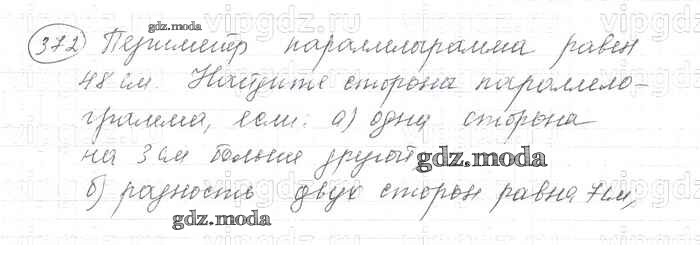 372 Периметр параллелограмма равен
48 см. Найдите стороны параллело-
грамма, если: а) одна сторона
на 3 см больше другой
б) разность двух сторон равна 7 см,
gdz.moda
gdz.moda
gdz.moda